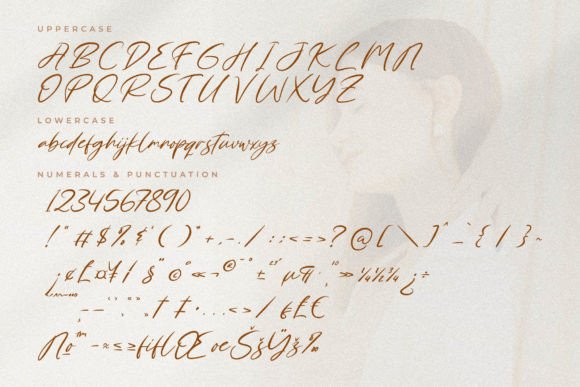 UPPERCASE
ABCDEFGHIJKLMN
OPQRSTUVWXYZ
LOWERCASE
abcdefghijklmnopqrstuvwxyz
NUMERALS & PUNCTUATION
1234567890
! " # $ % & ' ( ) * + , - . / : ; < = > ? @ [ \ ] ^ _ ` { | } ~
¡ ¢ £ ¤ ¥ ¦ § ¨ © ª « ¬ ® ¯ ° ± ² ³ ´ µ ¶ · ¸ ¹ º » ¼ ½ ¾ ¿ ÷
† ‡ • … < > / € £ €
№ ™ − ≈ ≤ ≥ fi fl Œ œ Š š Ÿ ž ‰